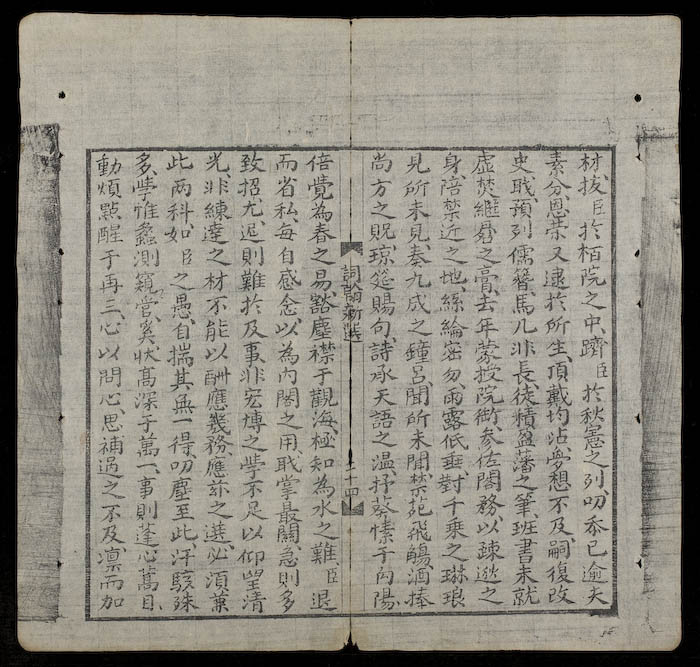 材拔臣於栢院之中躋臣於秋憲之列叨忝已逾夫
素分恩榮又逮於所生頂戴均沾夢想不及嗣復改
史耺預列儒簪馬几非長徒積盈藩之筆班書未就
虛焚継晷之膏去年蒙授院銜參佐閣務以疎逖之
身陪禁近之地絲綸密勿雨露低垂對千乘之琳琅
見所未見奏九成之鐘呂聞所未聞禁苑飛觴酒捧
尚方之貺瓊筵賜句詩承天語之温抒葵愫于向陽
詞新選 二十四
倍覺為春之易豁塵襟于觀海極知為水之難臣退
而省私每自感念以為内閣之用耺掌最關急則多
致招尤遲則難於及事非宏博之學不足以仰望清
光非練達之材不能以酬應幾務應玆之選必湏兼
此两科如臣之愚自揣其無一得叨塵至此汗駭殊
多學惟蠡測窺嘗奚狀高深于萬一事則蓬心萬目
動煩點醒于再三心以問心思補過之不及凛而加